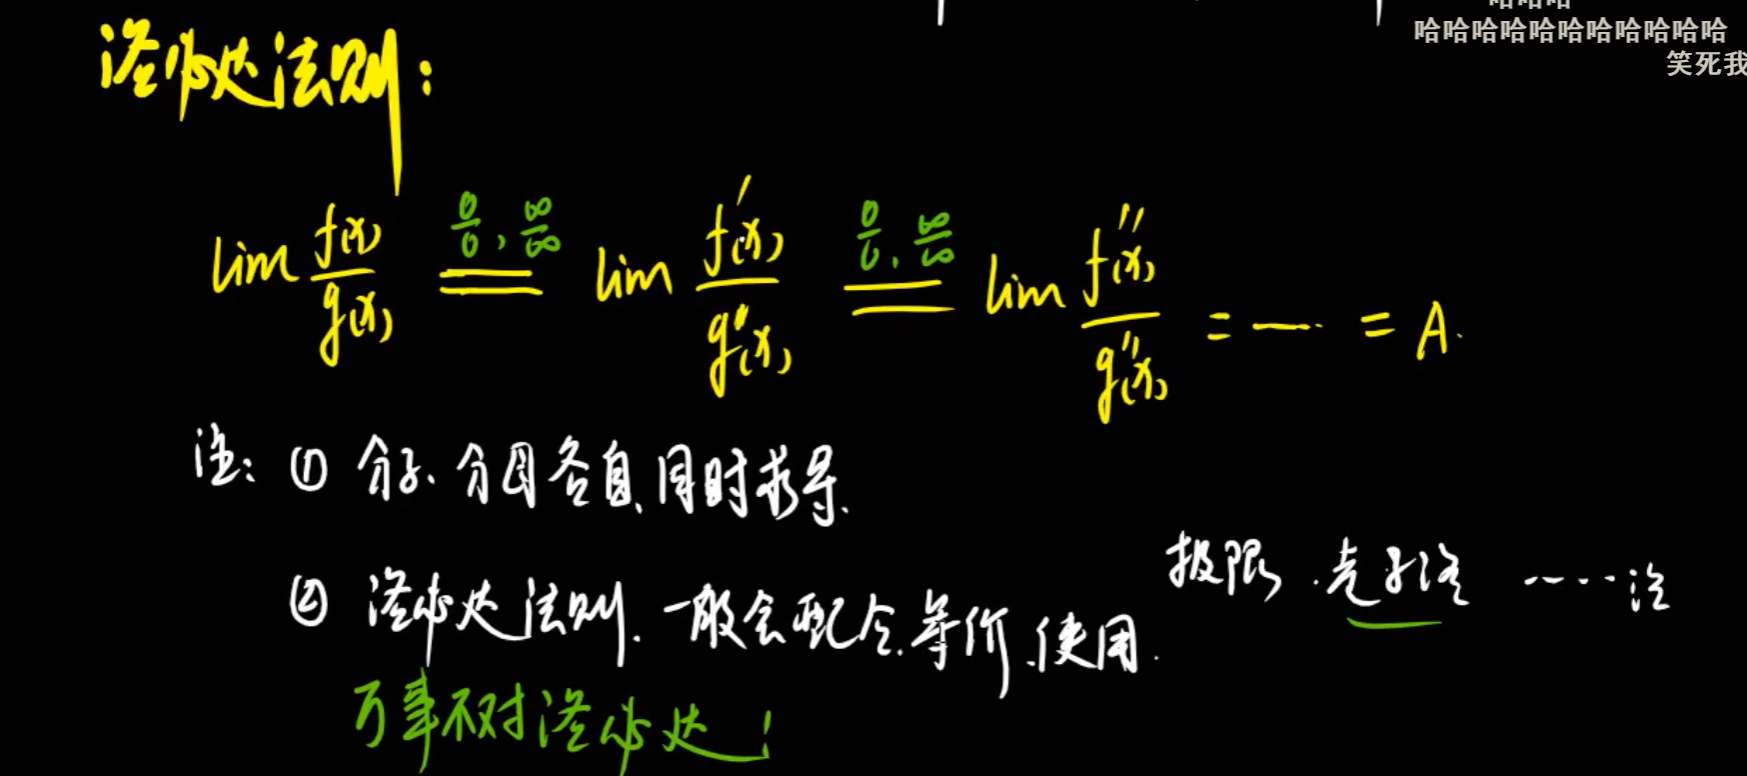 哈哈哈
哈哈哈哈哈哈哈哈哈哈哈
笑死我
洛必达法则:
lim f(x)/g(x) =(0/0, ∞/∞)= lim f'(x)/g'(x) =(0/0, ∞/∞)= lim f''(x)/g''(x) = …… = A.
注: ① 分子、分母各自、同时求导.
极限 ……洛
② 洛必达法则. 一般会配合.等价.使用.
万事不对洛必达!